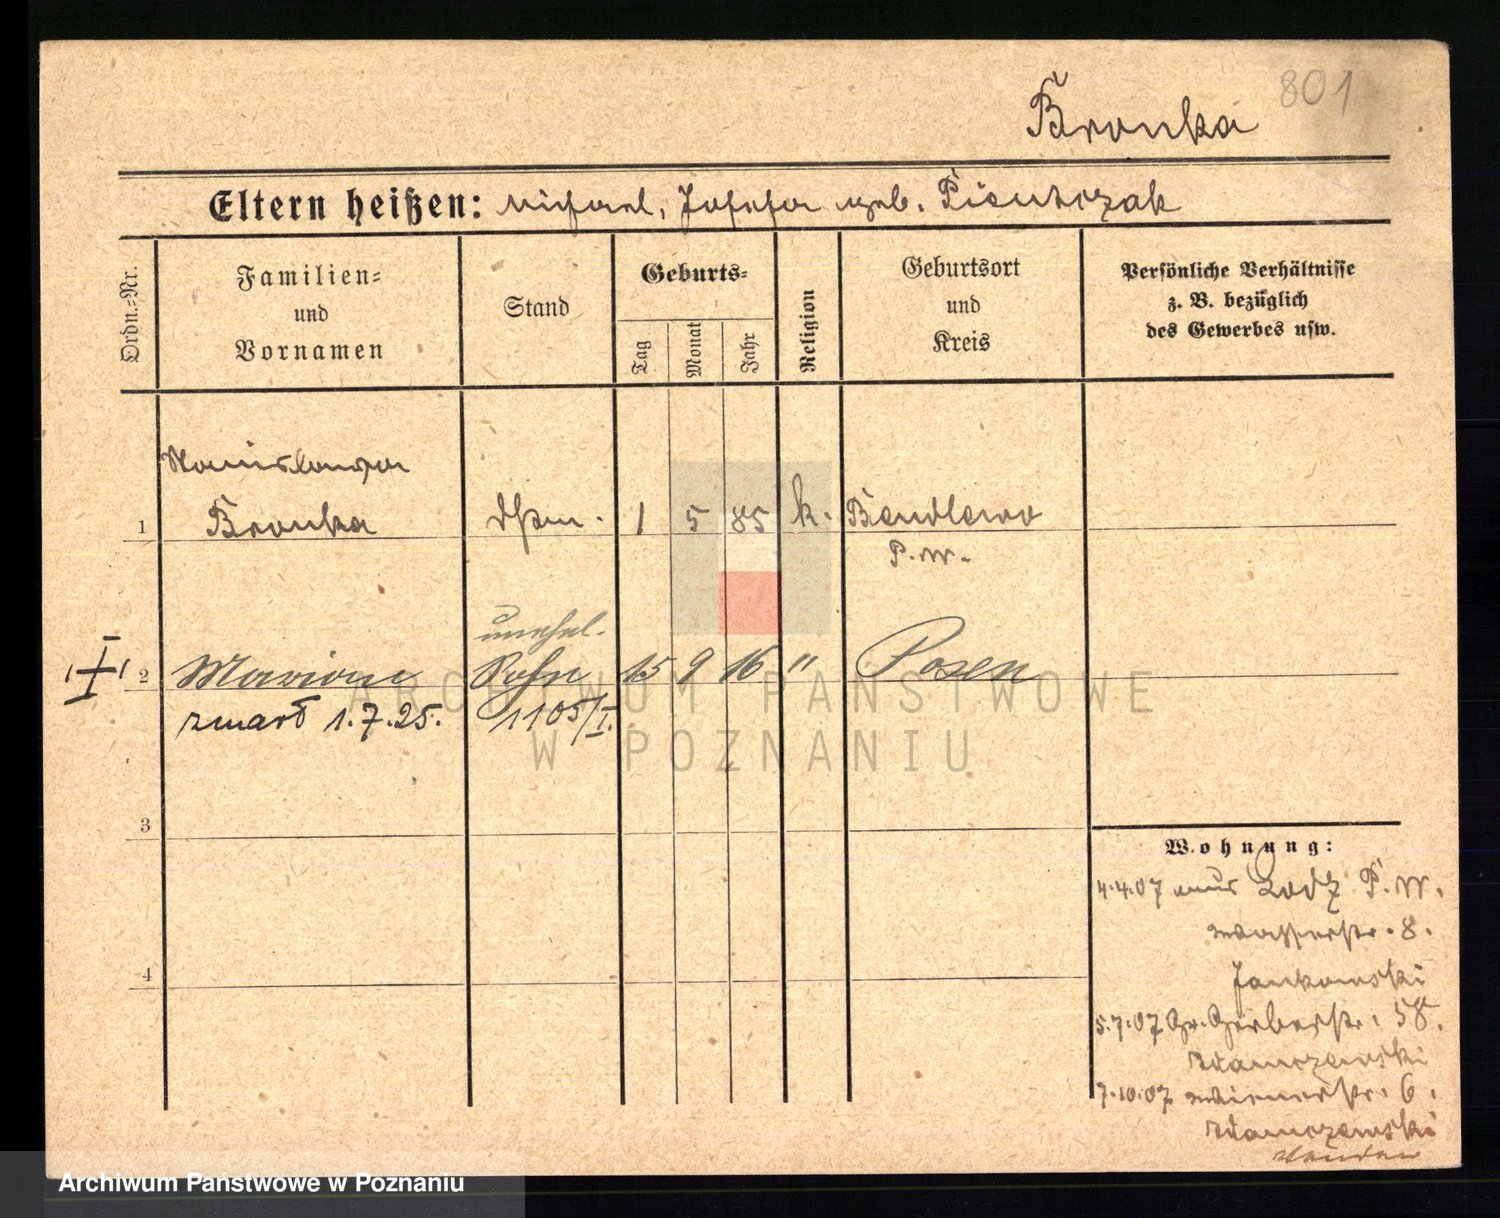 801
Bronka
Eltern heißen: Michael, Josefa geb. Pientczak
Ordn.-Nr.
Familien-
und
Vornamen
Stand
Geburts-
Tag
Monat
Jahr
Religion
Geburtsort
und
Kreis
Persönliche Verhältnisse
z. B. bezüglich
des Gewerbes usw.
Stanislawa
1 Bronka 1 5 85 k. Bendlewo
P. W.
unehel.
I 2 Marian Sohn 15 9 16 " Posen
zmarł 1.7.25. 1105/I.
3
4
Wohnung:
4.4.07 aus Lodz P. W.
Wasserstr. 8.
Jankowski
5.7.07 Gr. Gerberstr. 38.
Adamczewski
7.10.07 Wienerstr. 6.
Adamczewski
ARCHIWUM PAŃSTWOWE
W POZNANIU
Archiwum Państwowe w Poznaniu